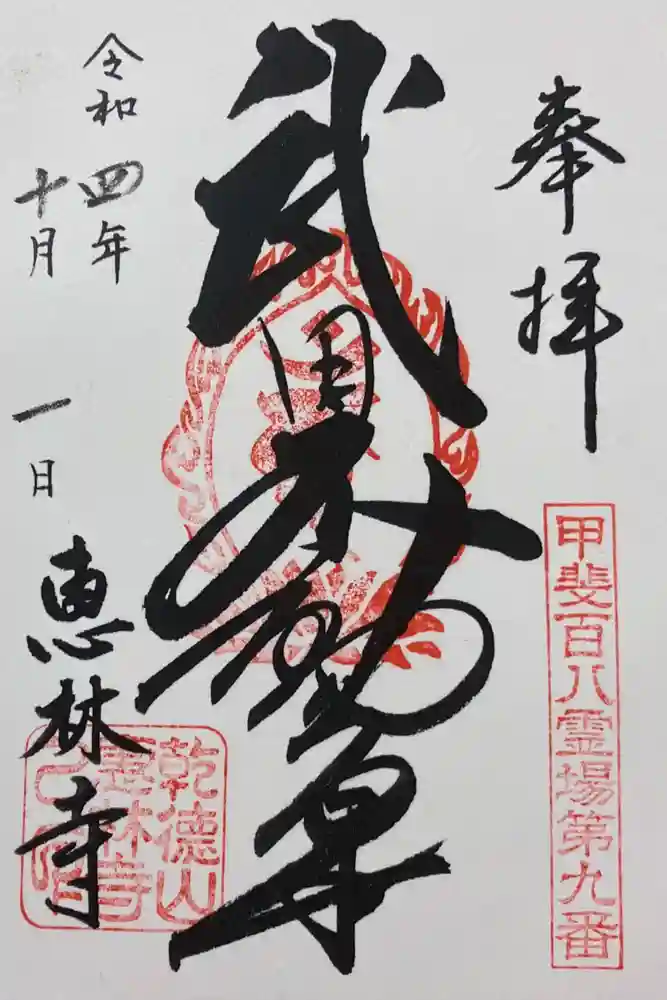 奉拝
甲斐百八霊場第九番
武田不動尊
令和四年
十月一日
恵林寺
乾徳山
恵林寺